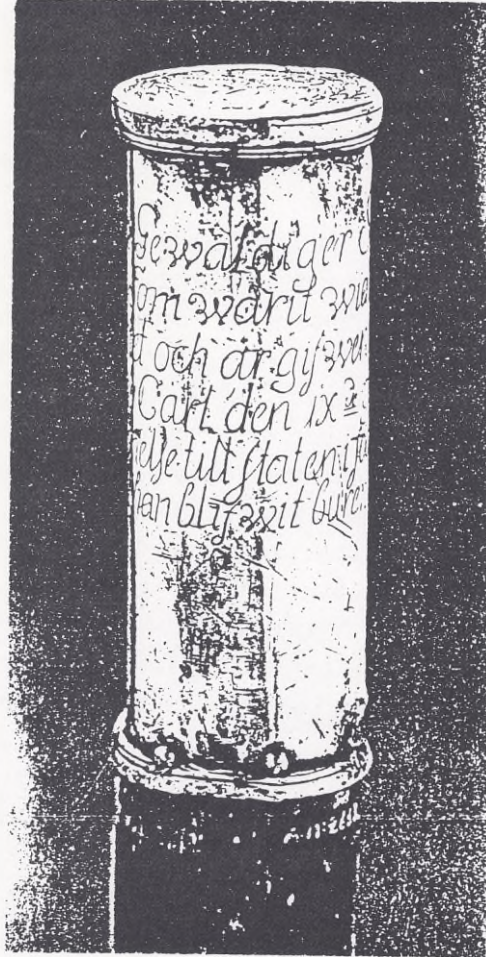 Gewaldiger
som warit
d och är gifwen
Carl den IX de
else till staten
han blifwit buren